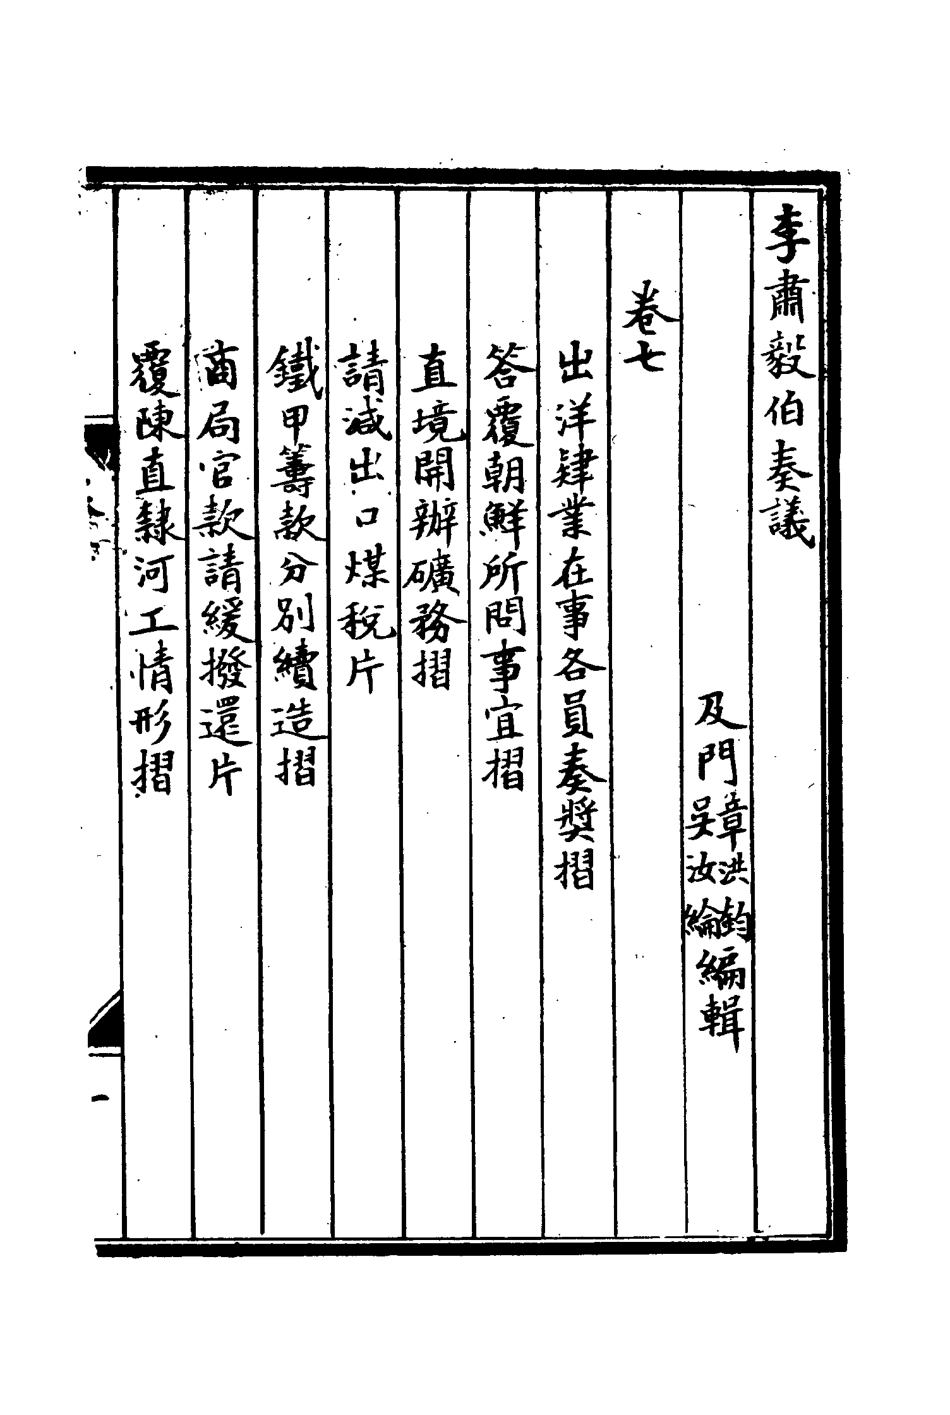 李肅毅伯奏議
及門章洪鈞吳汝綸編輯
卷七
出洋肄業在事各員奏獎摺
答覆朝鮮所問事宜摺
直境開辦礦務摺
請減出口煤稅片
鐵甲籌款分別續造摺
商局官款請緩撥還片
覆陳直隸河工情形摺
一